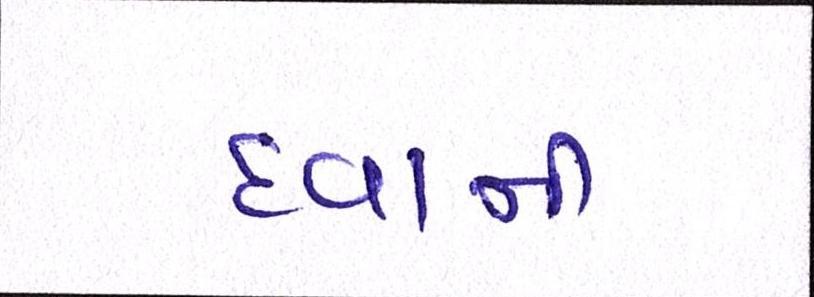 દવાની